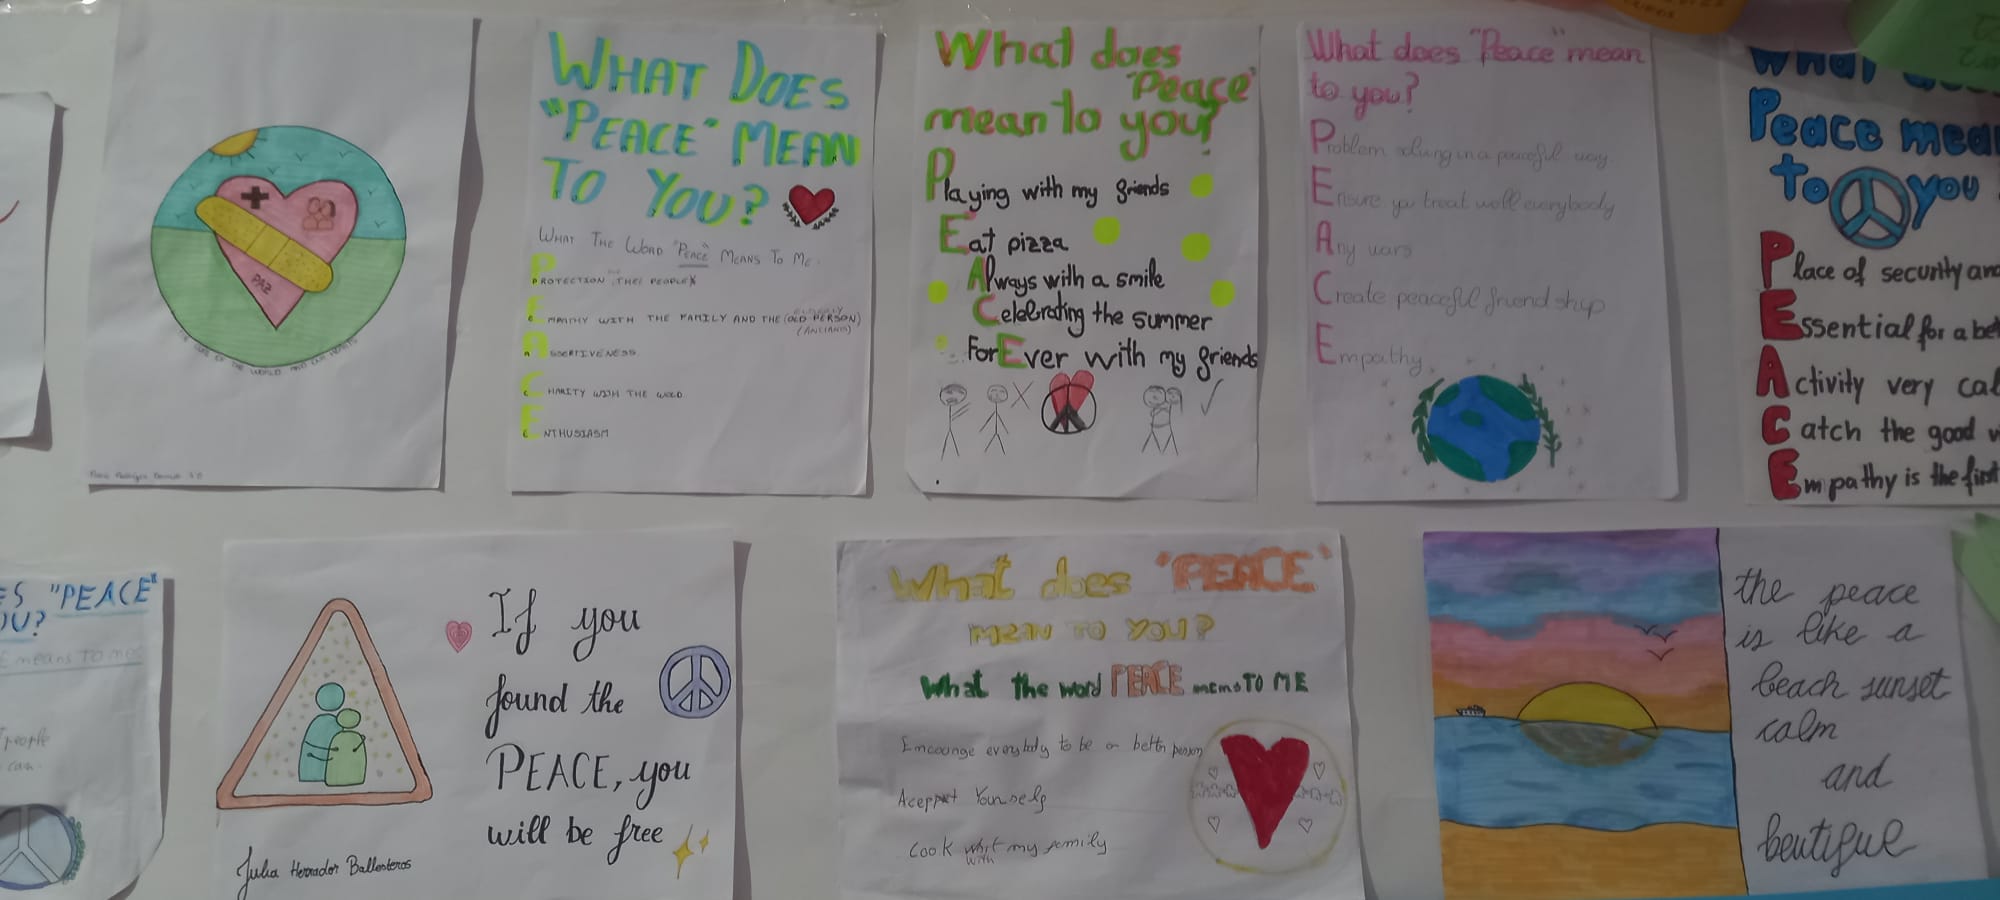 PAZ
OF THE WORLD AND OUR HEARTS
WHAT DOES
"PEACE" MEAN
TO YOU?
WHAT THE WORD "PEACE" MEANS TO ME.
PROTECTION THE PEOPLE
EMPATHY WITH THE FAMILY AND THE (OLD PERSON)
(ANCIANO)
ASSERTIVENESS
CHARITY WITH THE WOLD
ENTHUSIASM
What does
"Peace"
mean to you?
Playing with my friends
Eat pizza
Always with a smile
Celebrating the summer
ForEver with my friends
What does "Peace" mean
to you?
Problem solving in a peaceful way
Ensure you treat well everybody
Any wars
Create peaceful friendship
Empathy
What
Peace mean
to you
Place of security and
Essential for a be
Activity very cal
Catch the good
Empathy is the first
ES "PEACE"
OU?
means TO me
people
can
If you
found the
PEACE, you
will be free
Julia Herrador Ballesteros
What does "PEACE"
MEAN TO YOU?
What the word PEACE means TO ME
Encourage everybody to be a better person
Aceppt Yourself
Cook with my family
the peace
is like a
beach sunset
calm
and
beutifule